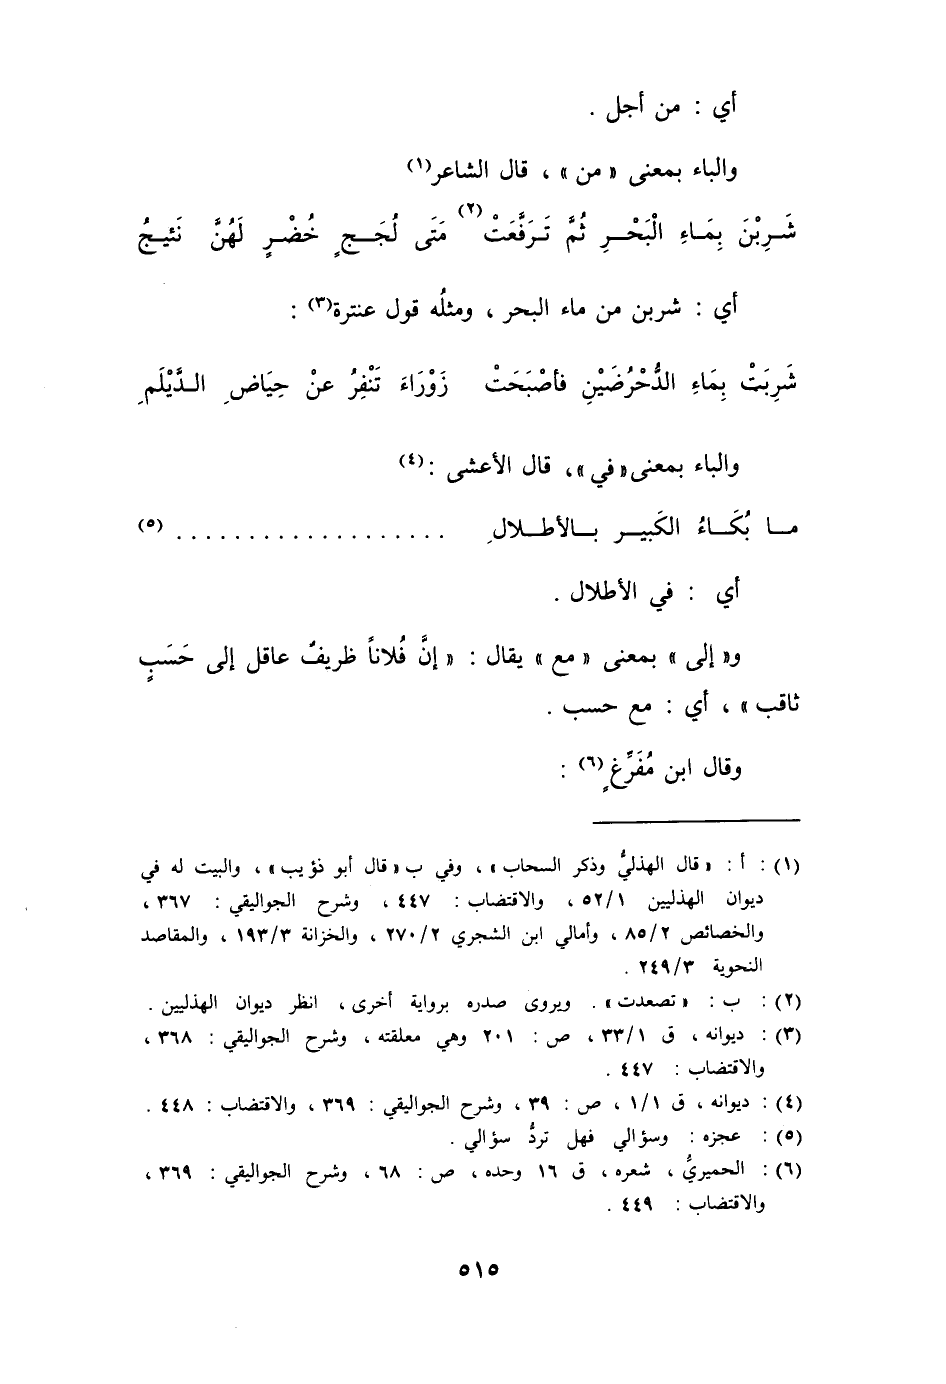 أي : من أجل .
والباء بمعنى « من » ، قال الشاعر(١)
شَرِبْنَ بِمَاءِ الْبَحْرِ ثُمَّ تَرَفَّعَتْ(٢) مَتَى لُجَجٍ خُضْرٍ لَهُنَّ نَئيجُ
أي : شربن من ماء البحر ، ومثلُه قول عنترة(٣) :
شَرِبَتْ بِمَاءِ الدُّحْرُضَيْنِ فأصْبَحَتْ زَوْرَاءَ تَنْفِرُ عنْ حِيَاضِ الدَّيْلَمِ
والباء بمعنى « في » ، قال الأعشى :(٤)
ما بُكَاءُ الكَبير بالأطلالِ . . . . . . . . . . . . . . . . . . . (٥)
أي : في الأطلال .
و« إلى » بمعنى « مع » يقال : « إنَّ فُلاناً ظريفٌ عاقل إلى حَسَبٍ
ثاقب » ، أي : مع حسب .
وقال ابن مُفَرِّغٍ(٦) :
(١) : أ : « قال الهذليُّ وذكر السحاب » ، وفي ب « قال أبو ذؤيب » ، والبيت له في
ديوان الهذليين ٥٢/١ ، والاقتضاب : ٤٤٧ ، وشرح الجواليقي : ٣٦٧ ،
والخصائص ٨٥/٢ ، وأمالي ابن الشجري ٢٧٠/٢ ، والخزانة ١٩٣/٣ ، والمقاصد
النحوية ٢٤٩/٣ .
(٢) : ب : « تصعدت » . ويروى صدره برواية أخرى ، انظر ديوان الهذليين .
(٣) : ديوانه ، ق ٣٣/١ ، ص : ٢٠١ وهي معلقته ، وشرح الجواليقي : ٣٦٨ ،
والاقتضاب : ٤٤٧ .
(٤) : ديوانه ، ق ١/١ ، ص : ٣٩ ، وشرح الجواليقي : ٣٦٩ ، والاقتضاب : ٤٤٨ .
(٥) : عجزه : وسؤالي فهل تردُّ سؤالي .
(٦) : الحميريُّ ، شعره ، ق ١٦ وحده ، ص : ٦٨ ، وشرح الجواليقي : ٣٦٩ ،
والاقتضاب : ٤٤٩ .
٥١٥